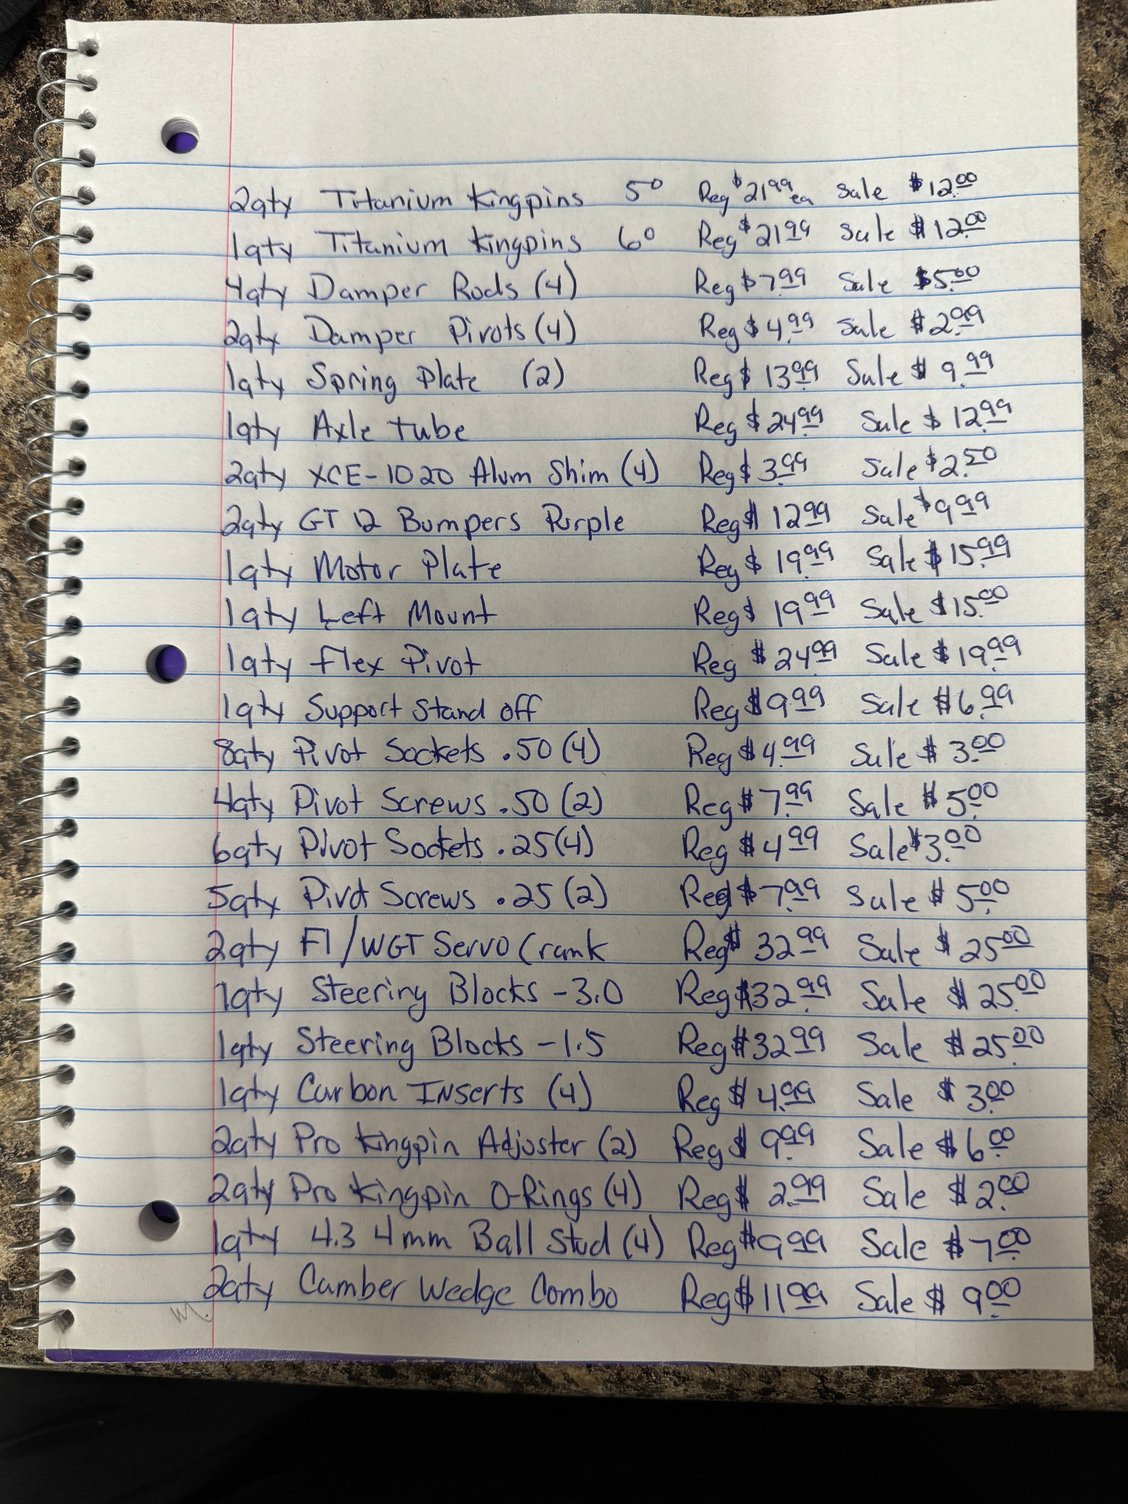 2qty Titanium Kingpins 5° Reg $21.99 ea Sale $12.00
1qty Titanium Kingpins 6° Reg $21.99 Sale $12.00
4qty Damper Rods (4) Reg $7.99 Sale $5.00
2qty Damper Pivots (4) Reg $4.99 Sale $2.99
1qty Spring Plate (2) Reg $13.99 Sale $9.99
1qty Axle tube Reg $24.99 Sale $12.99
2qty XCE-1020 Alum Shim (4) Reg $3.99 Sale $2.50
2qty GT 12 Bumpers Purple Reg $12.99 Sale $9.99
1qty Motor Plate Reg $19.99 Sale $15.99
1qty Left Mount Reg $19.99 Sale $15.00
1qty Flex Pivot Reg $24.99 Sale $19.99
1qty Support Stand off Reg $9.99 Sale $6.99
8qty Pivot Sockets .50 (4) Reg $4.99 Sale $3.00
4qty Pivot Screws .50 (2) Reg $7.99 Sale $5.00
6qty Pivot Sockets .25 (4) Reg $4.99 Sale $3.00
5qty Pivot Screws .25 (2) Reg $7.99 Sale $5.00
2qty F1/WGT Servo Crank Reg $32.99 Sale $25.00
1qty Steering Blocks -3.0 Reg $32.99 Sale $25.00
1qty Steering Blocks -1.5 Reg $32.99 Sale $25.00
1qty Carbon Inserts (4) Reg $4.99 Sale $3.00
2qty Pro Kingpin Adjuster (2) Reg $9.99 Sale $6.00
2qty Pro Kingpin O-Rings (4) Reg $2.99 Sale $2.00
1qty 4.3 4mm Ball Stud (4) Reg $9.99 Sale $7.00
2qty Camber Wedge Combo Reg $11.99 Sale $9.00